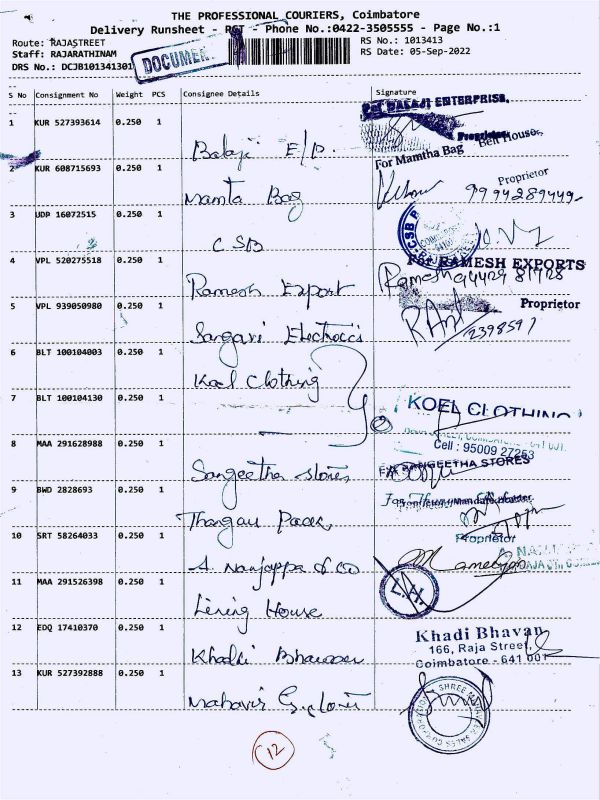 THE PROFESSIONAL COURIERS, Coimbatore
Delivery Runsheet - RGT - Phone No.:0422-3505555 - Page No.:1
Route: RAJASTREET RS No.: 1013413
Staff: RAJARATHINAM RS Date: 05-Sep-2022
DRS No.: DCJB101341301
DOCUMEN
S No Consignment No Weight PCS Consignee Details Signature
BALAJI ENTERPRISE,
1 KUR 527393614 0.250 1
Proprietor
Balaji E/P.
For Mamtha Bag Belt House,
2 KUR 608715693 0.250 1
Proprietor
Mamta Bag 9994289449
3 UDP 16072515 0.250 1
CSB
4 VPL 520275518 0.250 1
For RAMESH EXPORTS
Ramesh Export Ramesh 94429 81728
5 VPL 939050980 0.250 1
Proprietor
Sangavi Electrocis
6 BLT 100104003 0.250 1
Koel Clothing
7 BLT 100104130 0.250 1
KOEL CLOTHING
8 MAA 291628988 0.250 1
Cell : 95009 27253
SANGEETHA STORES
Sangeetha stores
9 BWD 2828693 0.250 1
For
Thangam
10 SRT 58264033 0.250 1
Proprietor
A. Nanjappa & co
11 MAA 291526398 0.250 1
L.H.
Lining House
12 EDQ 17410370 0.250 1
Khadi Bhavan
166, Raja Street,
Coimbatore - 641 001
Khadi Bhavan
13 KUR 527392888 0.250 1
Mahavir
12